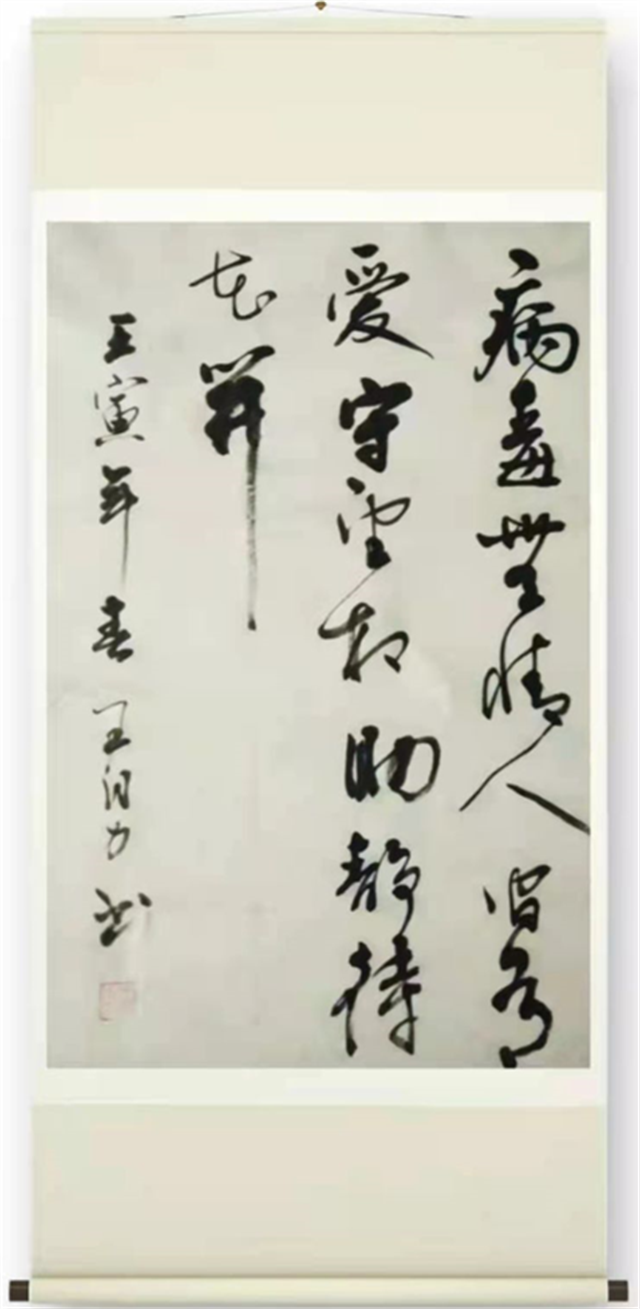 病毒無情人间有
爱守望相助静待
花開
壬寅年春王自力书